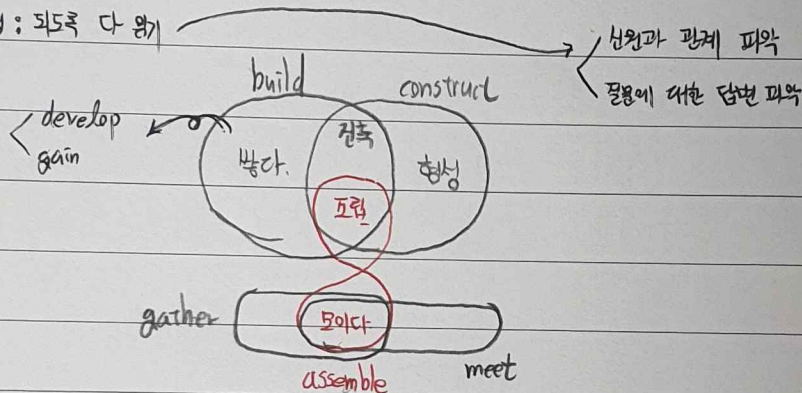 : 되도록 다 읽기
신원과 관계 파악
질문에 대한 답변 파악
build
construct
develop
gain
건축
쌓다.
형성
조립
gather
모이다
assemble
meet